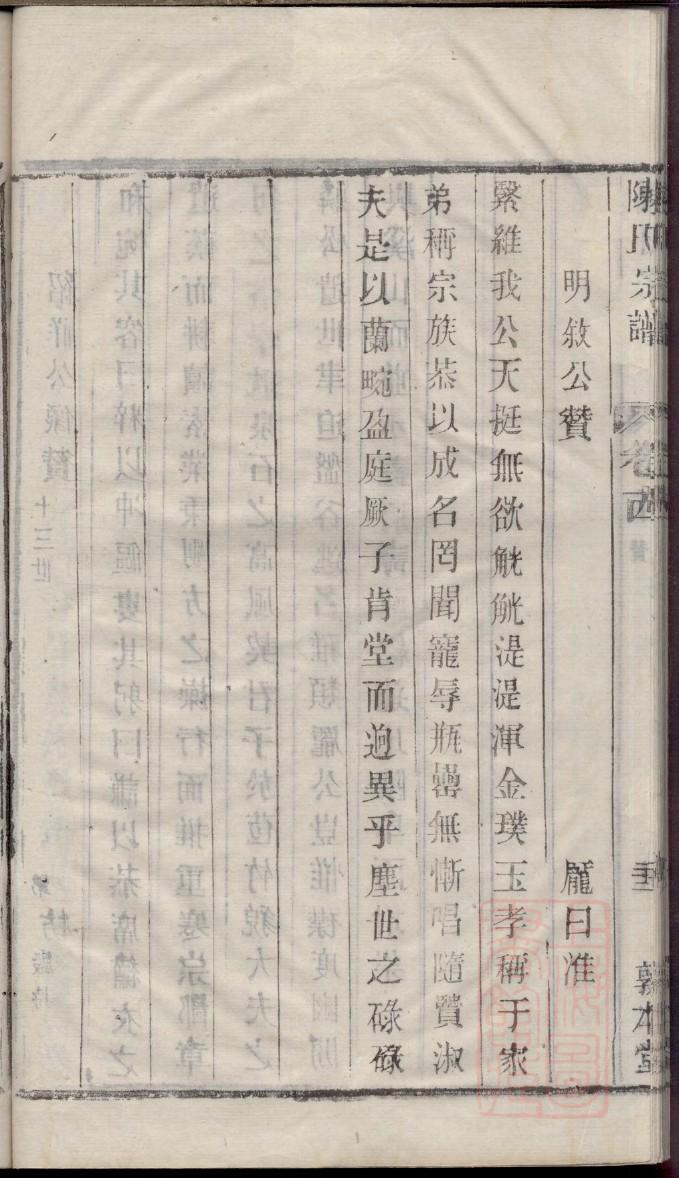 陳氏宗譜 卷 贊 敦本堂
明敘公贊 龐曰淮
繄維我公天挺無欲觥觥湜湜渾金璞玉孝稱于家
弟稱宗族恭以成名罔聞寵辱瓶罍無慚唱隨賢淑
夫是以蘭畹盈庭厥子肯堂而迥異乎塵世之碌碌